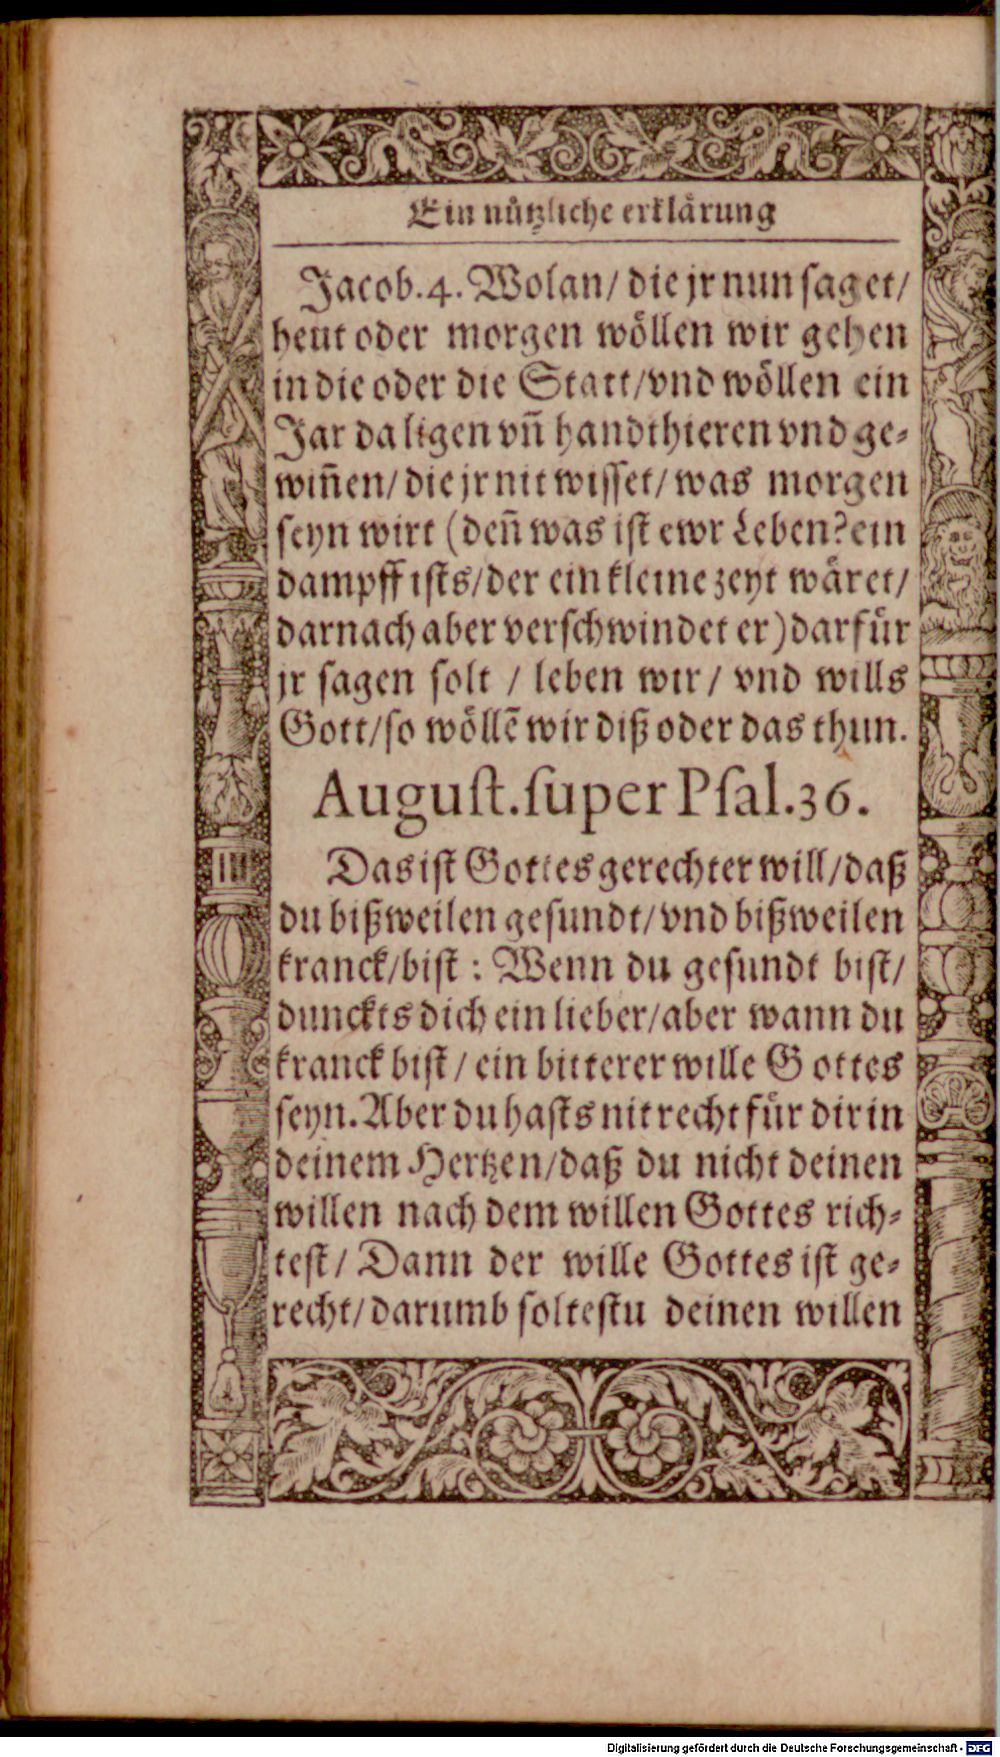 Ein nützliche erklärung
Jacob. 4. Wolan/ die jr nun saget/
heut oder morgen wöllen wir gehen
in die oder die Statt/ vnd wöllen ein
Jar da ligen vñ handthieren vnd ge⸗
wiñen/ die jr nit wisset/ was morgen
seyn wirt (deñ was ist ewr Leben? ein
dampff ists/ der ein kleine zeyt wäret/
darnach aber verschwindet er) darfür
jr sagen solt / leben wir/ vnd wills
Gott/ so wöllẽ wir diß oder das thun.
August. super Psal. 36.
Das ist Gottes gerechter will/ daß
du bißweilen gesundt/ vnd bißweilen
kranck/ bist : Wenn du gesundt bist/
dunckts dich ein lieber/ aber wann du
kranck bist / ein bitterer wille Gottes
seyn. Aber du hasts nit recht für dir in
deinem Hertzen/ daß du nicht deinen
willen nach dem willen Gottes rich⸗
test/ Dann der wille Gottes ist ge⸗
recht/ darumb soltestu deinen willen
Digitalisierung gefördert durch die Deutsche Forschungsgemeinschaft - DFG